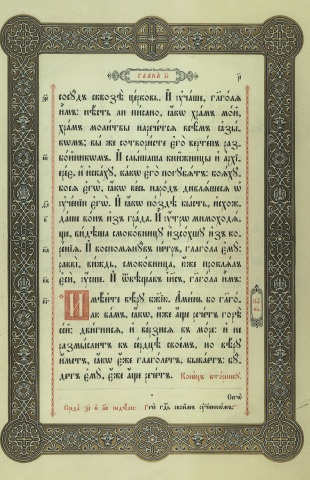 ГЛАВА
сосꙋдъ сквозѣ церковь. И ᲂучаше, глаголѧ
имъ: нѣсть ли писано, ꙗкѡ храмъ мой,
храмъ молитвы наречетсѧ всѣмъ ꙗзы-
кѡмъ; вы же сотвористе егѡ вертепъ раз-
бойникѡмъ. И слышаша книжницы и архї-
ерее, и искахꙋ, какѡ его погꙋбѧтъ: боѧхꙋ-
босѧ егѡ, ꙗкѡ весь народъ дивлѧшесѧ ѡ
ᲂученїи егѡ. И ꙗкѡ поздѣ бысть, исхож-
даше вонъ изъ града. И ᲂутрѡ мимоходѧ-
ще, видѣша смоковницꙋ изсохшꙋ изъ ко-
ренїѧ. И воспомѧнꙋвъ петръ, глагола емꙋ:
равви, виждь, смоковница, юже проклѧлъ
еси, ᲂусше. И ѿвѣщавъ іисъ, глагола имъ:
Имѣйте вѣрꙋ бжїю. Аминь бо глаго-
лю вамъ, ꙗкѡ, иже аще речетъ горѣ
сей: двигнисѧ, и верзисѧ въ море: и не
размыслитъ въ сердцѣ своемъ, но вѣрꙋ
иметъ, ꙗкѡ еже глаголетъ, бываетъ: бꙋ-
детъ емꙋ, еже аще речетъ. Конецъ вторникꙋ.
Рече гдь своимъ ᲂученикѡмъ: